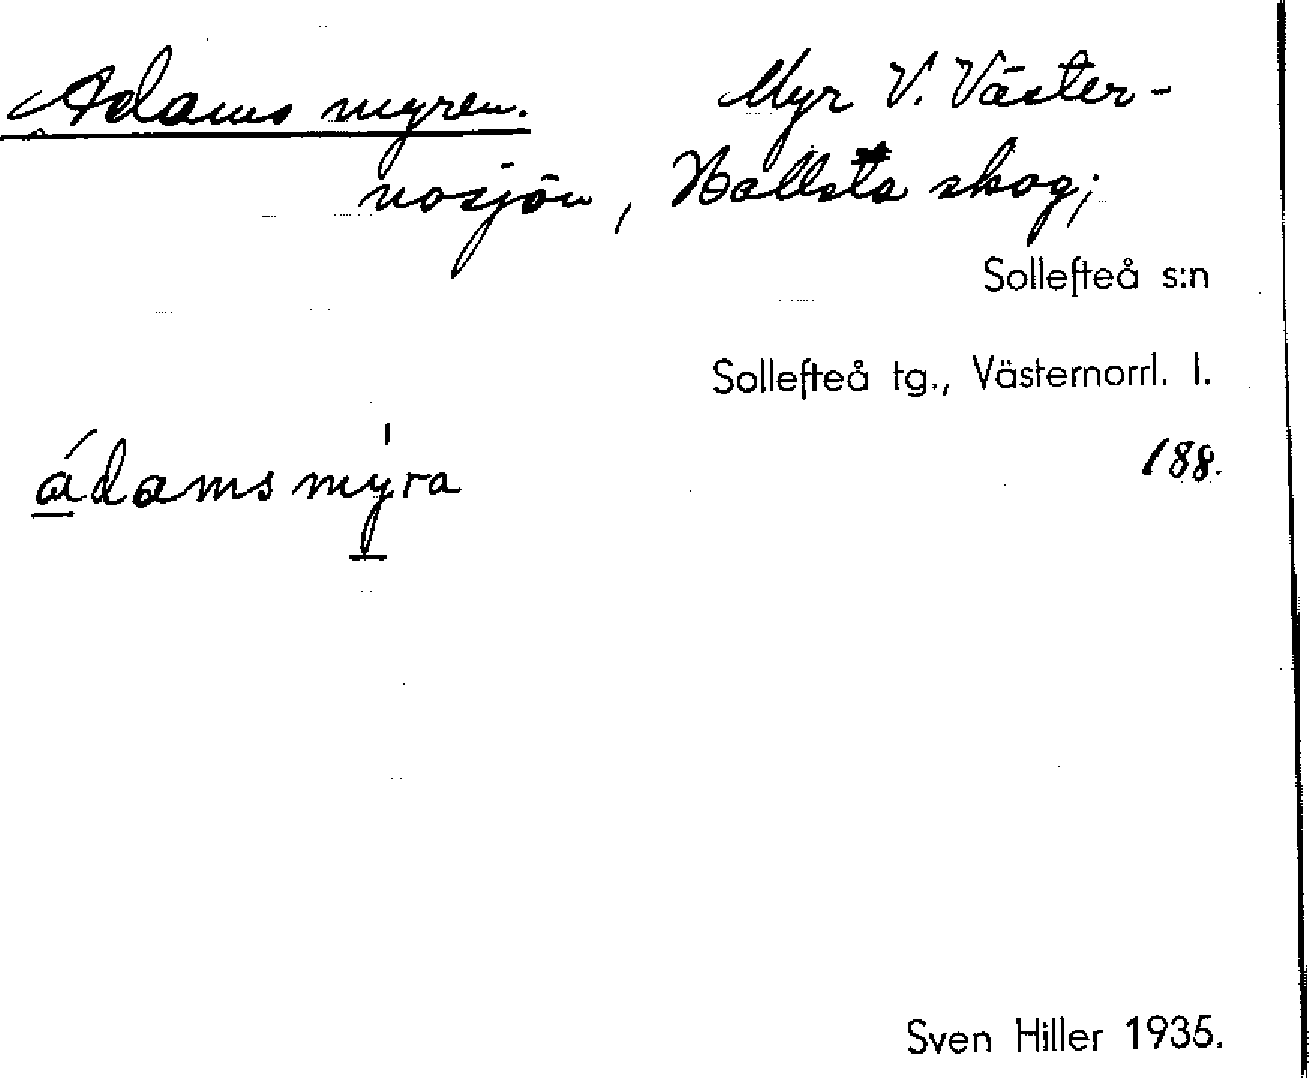 Adams myren. Myr V. Väster-
nosjön, Hallsta skog;
Sollefteå s:n
Sollefteå tg., Västernorrl. l.
188.
ádamsmýra
Sven Hiller 1935.